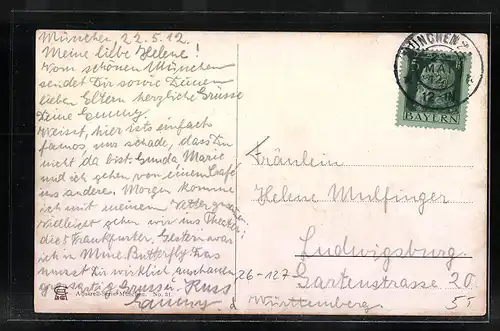 München, 22.5.12.
Meine liebe Helene!
Vom schönen München
sendet Dir sowie Deinen
lieben Eltern herzliche Grüsse
Deine
weisst, hier ists einfach
famos, uns schade, dass Du
nicht da bist. Gunda, Marie
und ich gehen von einem Café
ins andere. Morgen komme
ich mit meinem Vetter
vielleicht gehen wir ins Theater:
die 5 Frankfurter. Gestern war
ich in Mme. Butterfly. Das
musst Du wirklich anschauen
Grüsse. Kuss
MÜNCHEN
MAI
12
BAYERN
Fräulein
Helene Mulfinger
Ludwigsburg.
Gartenstrasse 20
Württemberg.
26-127
5.-
No. 21.